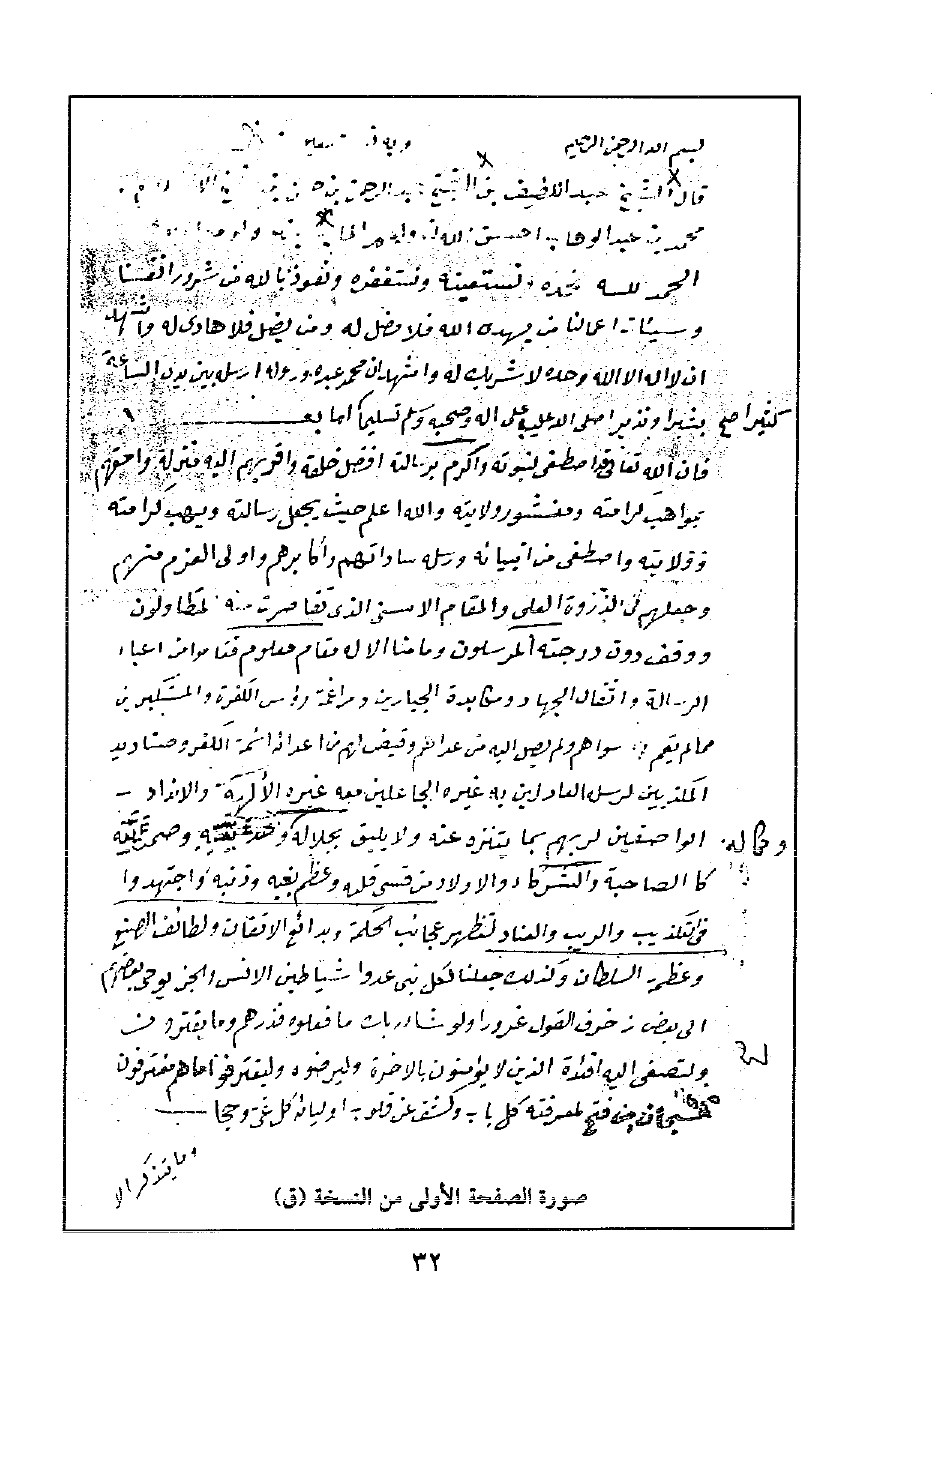 بسم الله الرحمن الرحيم وبه
قال الشيخ عبد اللطيف بن الشيخ عبد الرحمن بن حسن بن
محمد بن عبد الوهاب احسن الله
الحمد لله نحمده ونستعينه ونستغفره ونعوذ بالله من شرور انفسنا
وسيئات اعمالنا من يهدى الله فلا مضل له ومن يضلل فلا هادى له واشهد
ان لا اله الا الله وحده لا شريك له واشهد ان محمد عبده ورسوله ارسله بين يدى الساعة
بشيرا ونذيرا صلى الله عليه وعلى اله وصحبه وسلم تسليما كثيرا صح اما بعد
فان الله تعالى قد اصطفى لنبوته واكرم برسالته افضل خلقه واقربهم اليه منزلة واحقهم
بمواهب كرامته ومنشور ولايته والله اعلم حيث يجعل رسالته ويهب كرامته
وولايته واصطفى من انبيائه ورسله ساداتهم واكابرهم واولى العزم منهم
وجعلهم فى الذروة العلى والمقام الاسنى الذى تقاصرت عنه المتطاولون
ووقف دون درجته المرسلون وما منا الا له مقام معلوم فقاموا من اعباء
الرسالة واثقال الجهاد ومكابدة الجبارين ومراغمة رؤس الكفرة والمتكبرين
مما لم يقم به سواهم ولم يصل اليه من عداهم وقيض لهم من اعدائه ائمة الكفر وصناديد
المكذبين لرسل العادلين به غيره الجاعلين معه غيره الألهية والانداد
الواصفين لربهم بما يتنزه عنه ولا يليق بجلاله وكماله
كالصاحبة والشركاء والاولاد من قسى قلبه وعظم بغيه وذنبه واجتهدوا
فى تكذيب والريب والعناد لتظهر عجائب الحكمة وبدائع الاتقان ولطائف الصنع
وعظمة السلطان وكذلك جعلنا لكل نبى عدوا شياطين الانس والجن يوحى بعضهم
الى بعض زخرف القول غرورا ولو شاء ربك ما فعلوه فذرهم وما يفترون
ولتصغى اليه افئدة الذين لا يؤمنون بالاخرة وليرضوه وليقترفوا ما هم مقترفون
فسبحان من فتح لمعرفته كل باب وكشف عن قلوب اوليائه كل غى وحجاب
وما يتذكر الا
صورة الصفحة الأولى من النسخة (ق)
٣٢